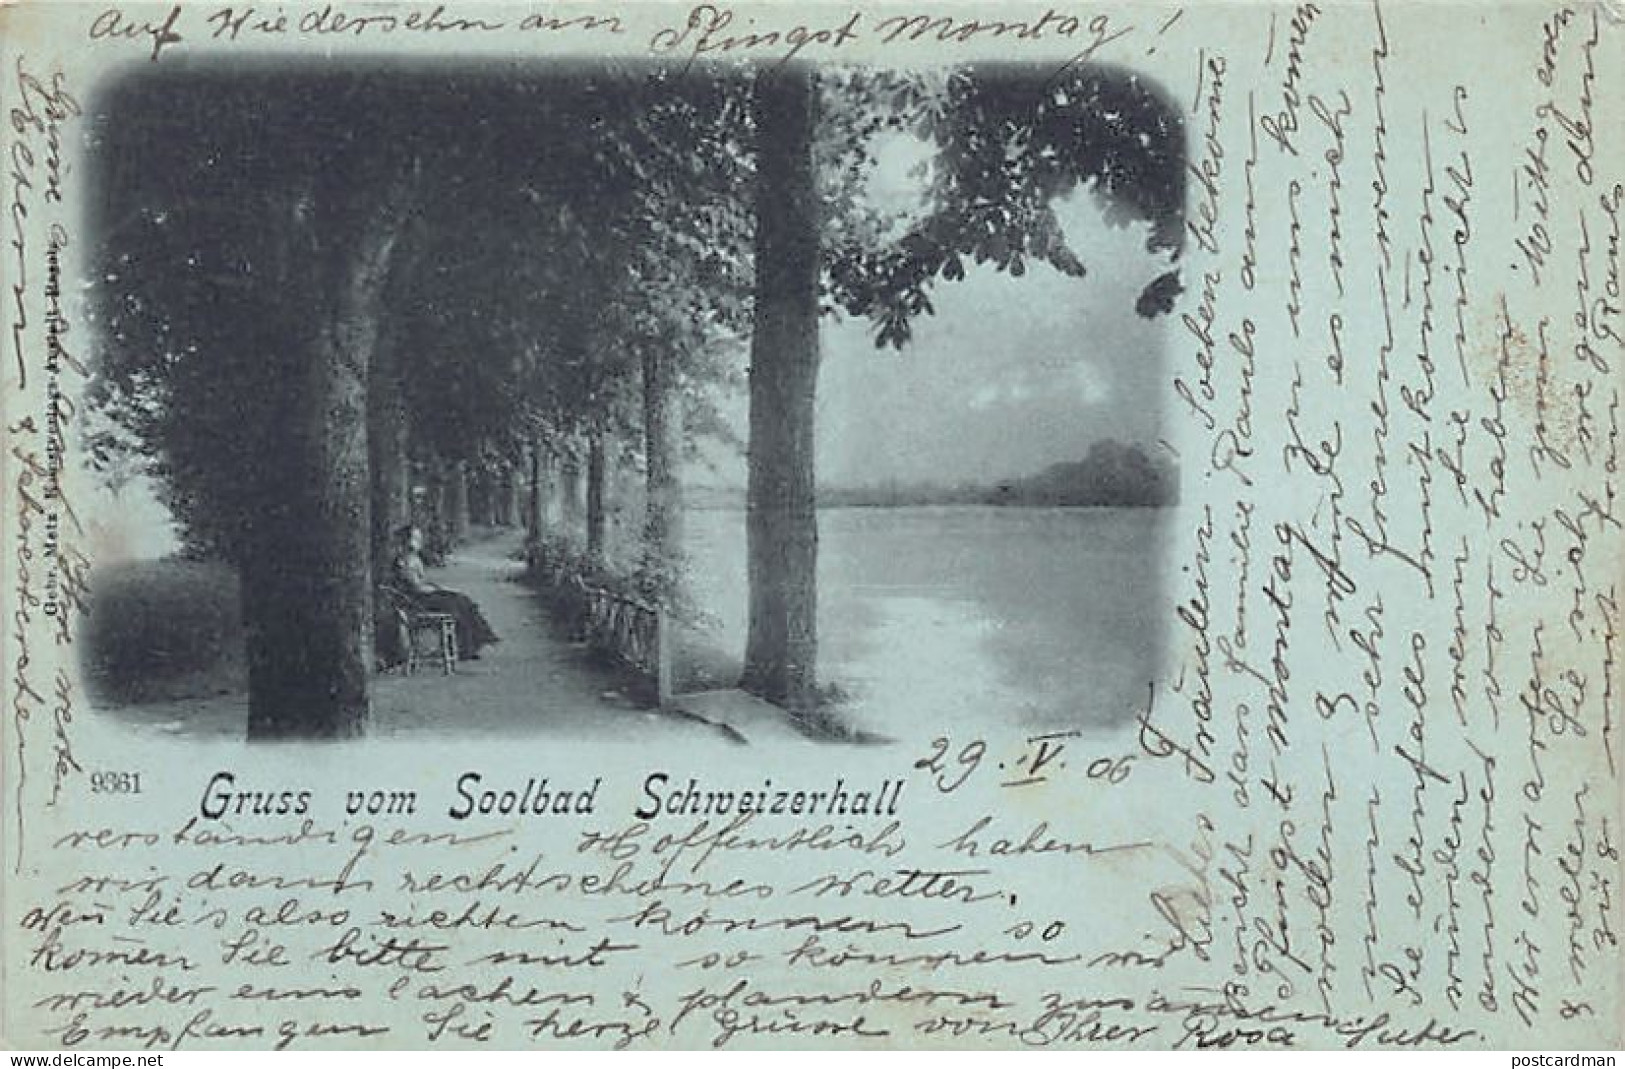 Auf Wiedersehn am Pfingst Montag!
Gruss vom Soolbad Schweizerhall
9361
29. V. 06
Liebes Fräulein. Soeben bekome
Bericht dass familie Rauls am
Pfingst Montag zu uns komen
wollen & würde es mich
nun sehr freuen wenn
Sie ebenfalls mit komen
würden wenn Sie nicht s
anderes vor haben.
Wir erwarten Sie zum Mittagessen
& wollen Sie sich wegen dem
Zug mit frau Rauls
verständigen. Hoffentlich haben
wir dann recht schönes Wetter.
Wen Sie's also richten können so
komen Sie bitte mit so können wir
wieder eins lachen & plaudern zusamen.
Empfangen Sie herze Grüsse von Ihrer Rosa Suter.
Eltern & schwestern
postcardman
www.delcampe.net